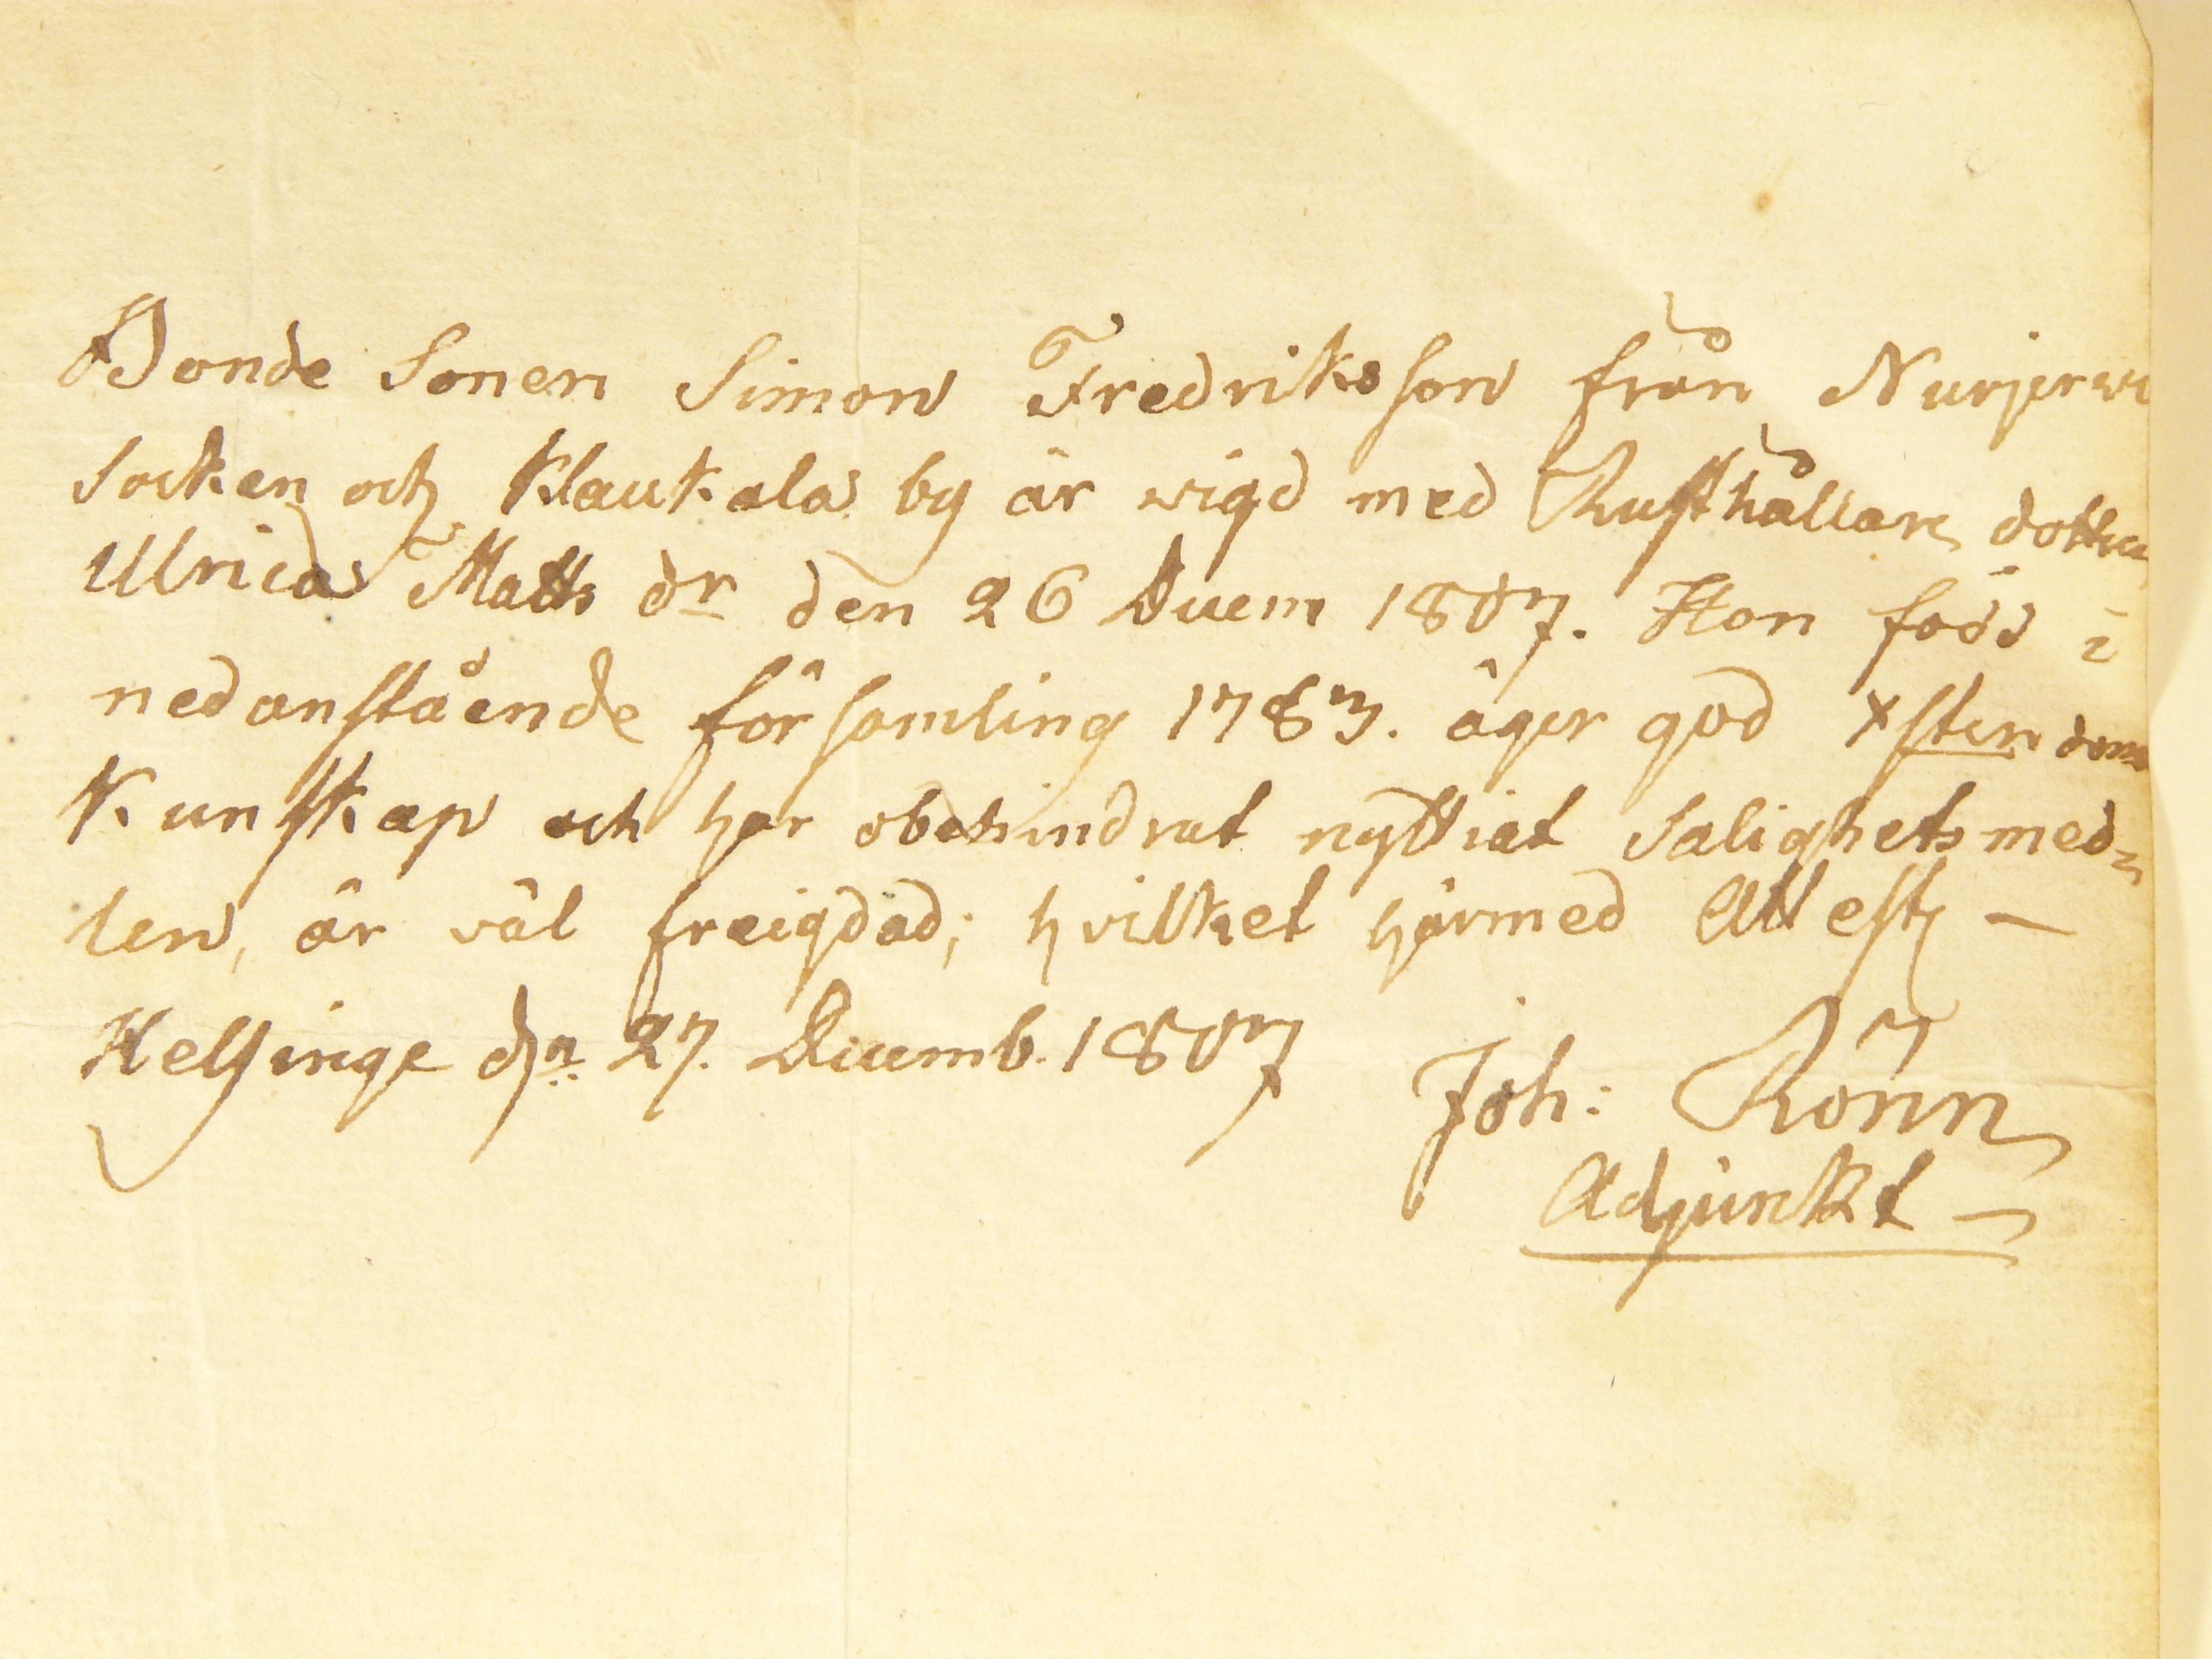 Bonde Sonen Simon Fredriksson från Nurjerwi
Socken och Klaukala by är wigd med Rusthållare dotter
Ulrica Matts dr den 26 Decem 1807. Hon född i
nedanstående församling 1783. äger god Xsten doms
Kunskap och har obehindrat nyttiat Salighets med=
len, är väl freigdad; hvilket härmed Attest
Helsinge dn 27. Decemb. 1807
Joh: Rönn
Adjunkt